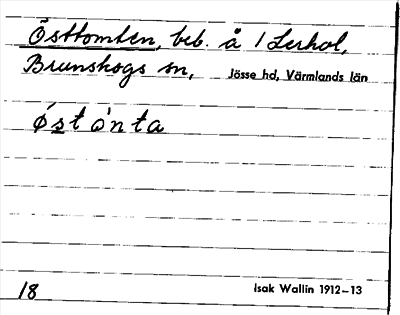 Östtomten, beb. å 1 Lerhol,
Brunskogs sn, Jösse hd, Värmlands län
ǿstònta
18 Isak Wallin 1912–13